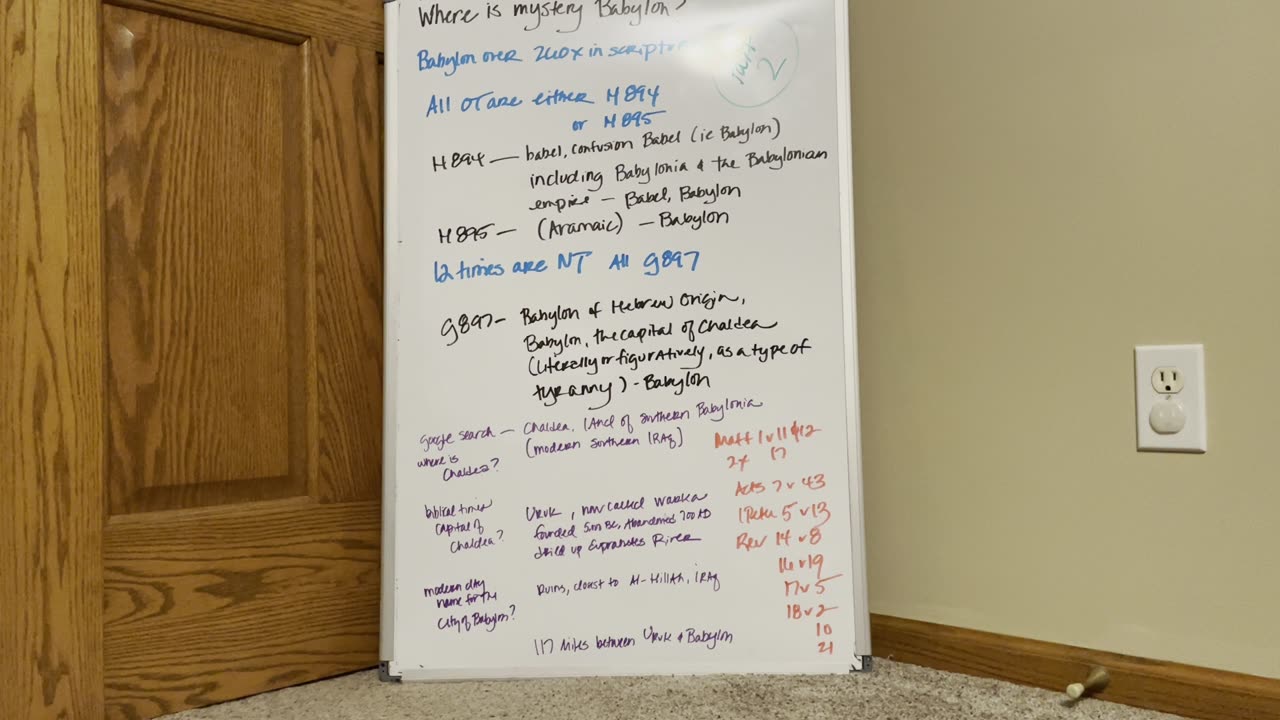 Where is mystery Babylon?
Babylon over 260x in scripture
Part
2
All OT are either H894
or H895
H894 — babel, confusion Babel (ie Babylon)
including Babylonia & the Babylonian
empire — Babel, Babylon
H895 — (Aramaic) — Babylon
12 times are NT All G897
G897 — Babylon of Hebrew Origin,
Babylon, the capital of Chaldea
(literally or figuratively, as a type of
tyranny) - Babylon
google search — Chaldea, land of Southern Babylonia
where is (modern Southern IRAq)
Chaldea?
Matt 1 v 11 & 12
2x 17
Acts 7 v 43
1 Peter 5 v 13
Rev 14 v 8
16 v 19
17 v 5
18 v 2
10
21
biblical times
capital of
Chaldea?
Uruk, now called Warka
founded 5000 BC, Abandoned 700 AD
dried up Euphrates River
modern day
name for the
city of Babylon?
Ruins, closest to Al-Hillah, IRAq
117 Miles between Uruk & Babylon